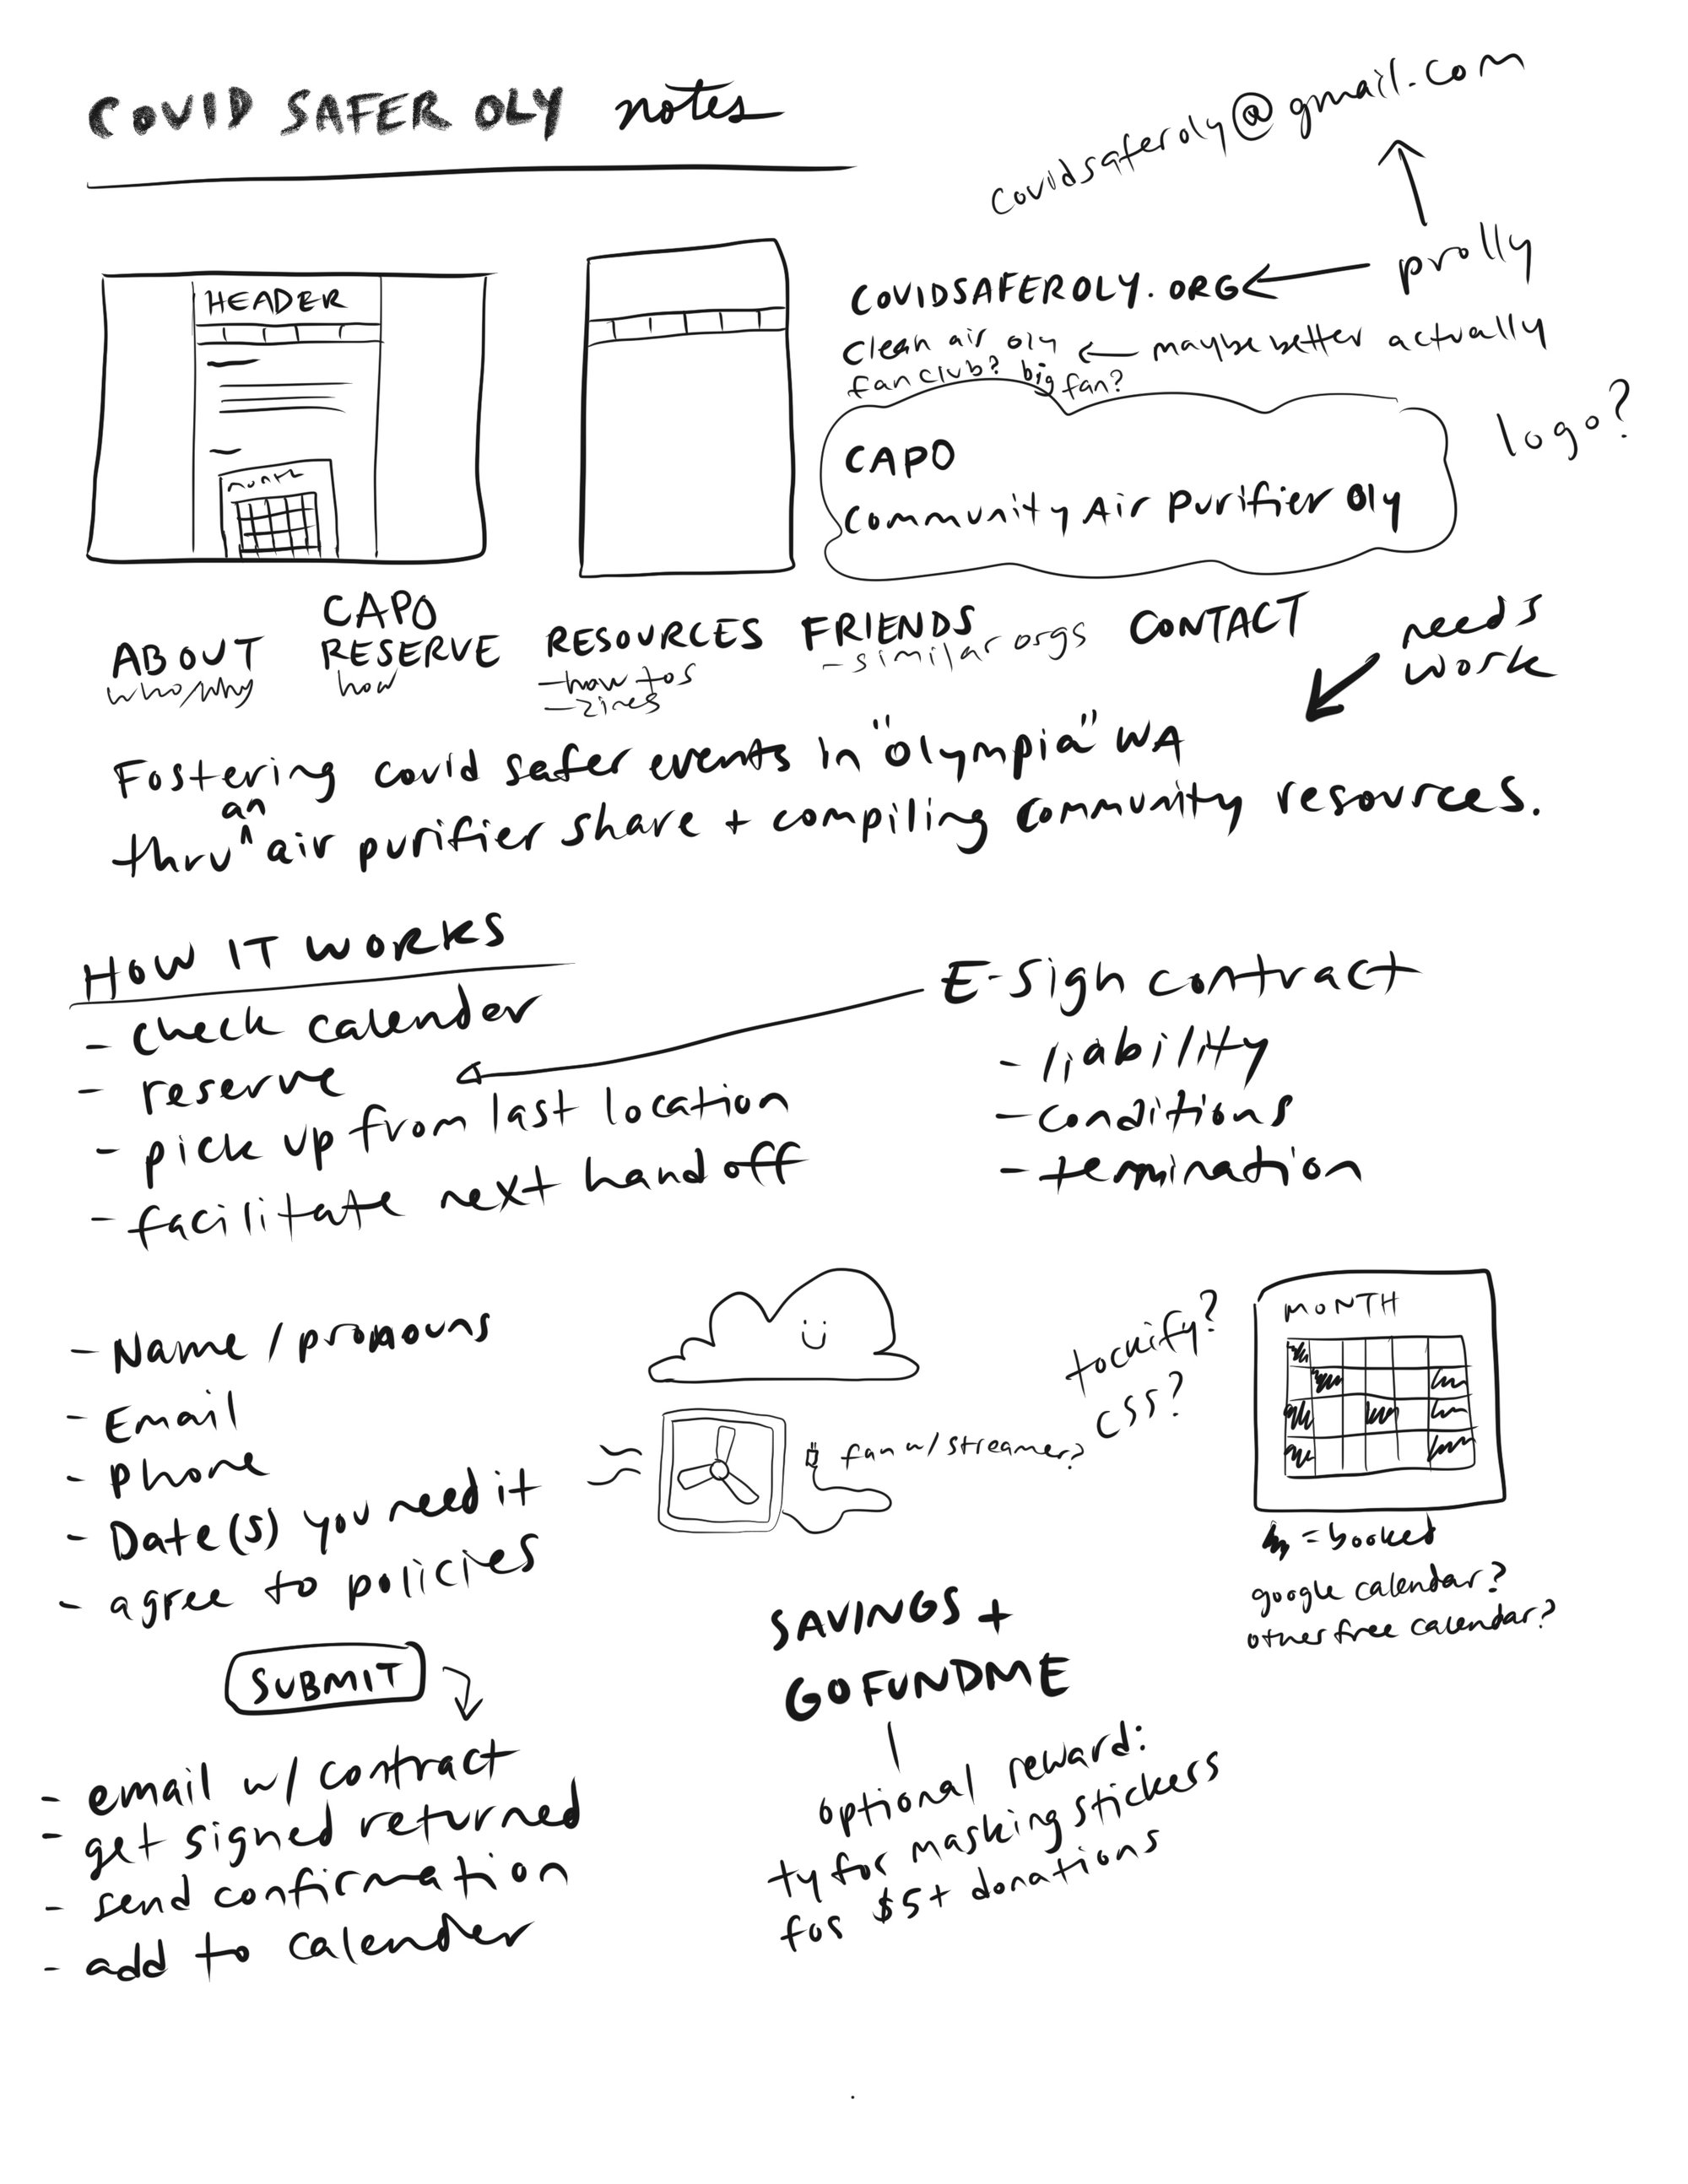 COVID SAFER OLY notes
covidsaferoly@gmail.com
prolly
COVIDSAFEROLY.ORG
clean air oly
maybe better actually
fanclub? big fan?
HEADER
MONTH
CAPO
Community Air Purifier Oly
logo?
ABOUT
who/why
CAPO
RESERVE
how
RESOURCES
- how tos
- zines
FRIENDS
- similar orgs
CONTACT
needs
work
Fostering covid safer events in "olympia" WA
thru an air purifier share + compiling community resources.
HOW IT WORKS
- check calender
- reserve
- pick up from last location
- facilitate next hand off
E-Sign contract
- liability
- conditions
- termination
- Name / pronouns
- Email
- Phone
- Date(s) you need it
- agree to policies
SUBMIT
- email w/ contract
- get signed returned
- send confirmation
- add to calender
fan w/ streamer?
tockify?
css?
MONTH
= booked
google calendar?
other free calendar?
SAVINGS +
GOFUNDME
optional reward:
ty for masking stickers
for $5+ donations